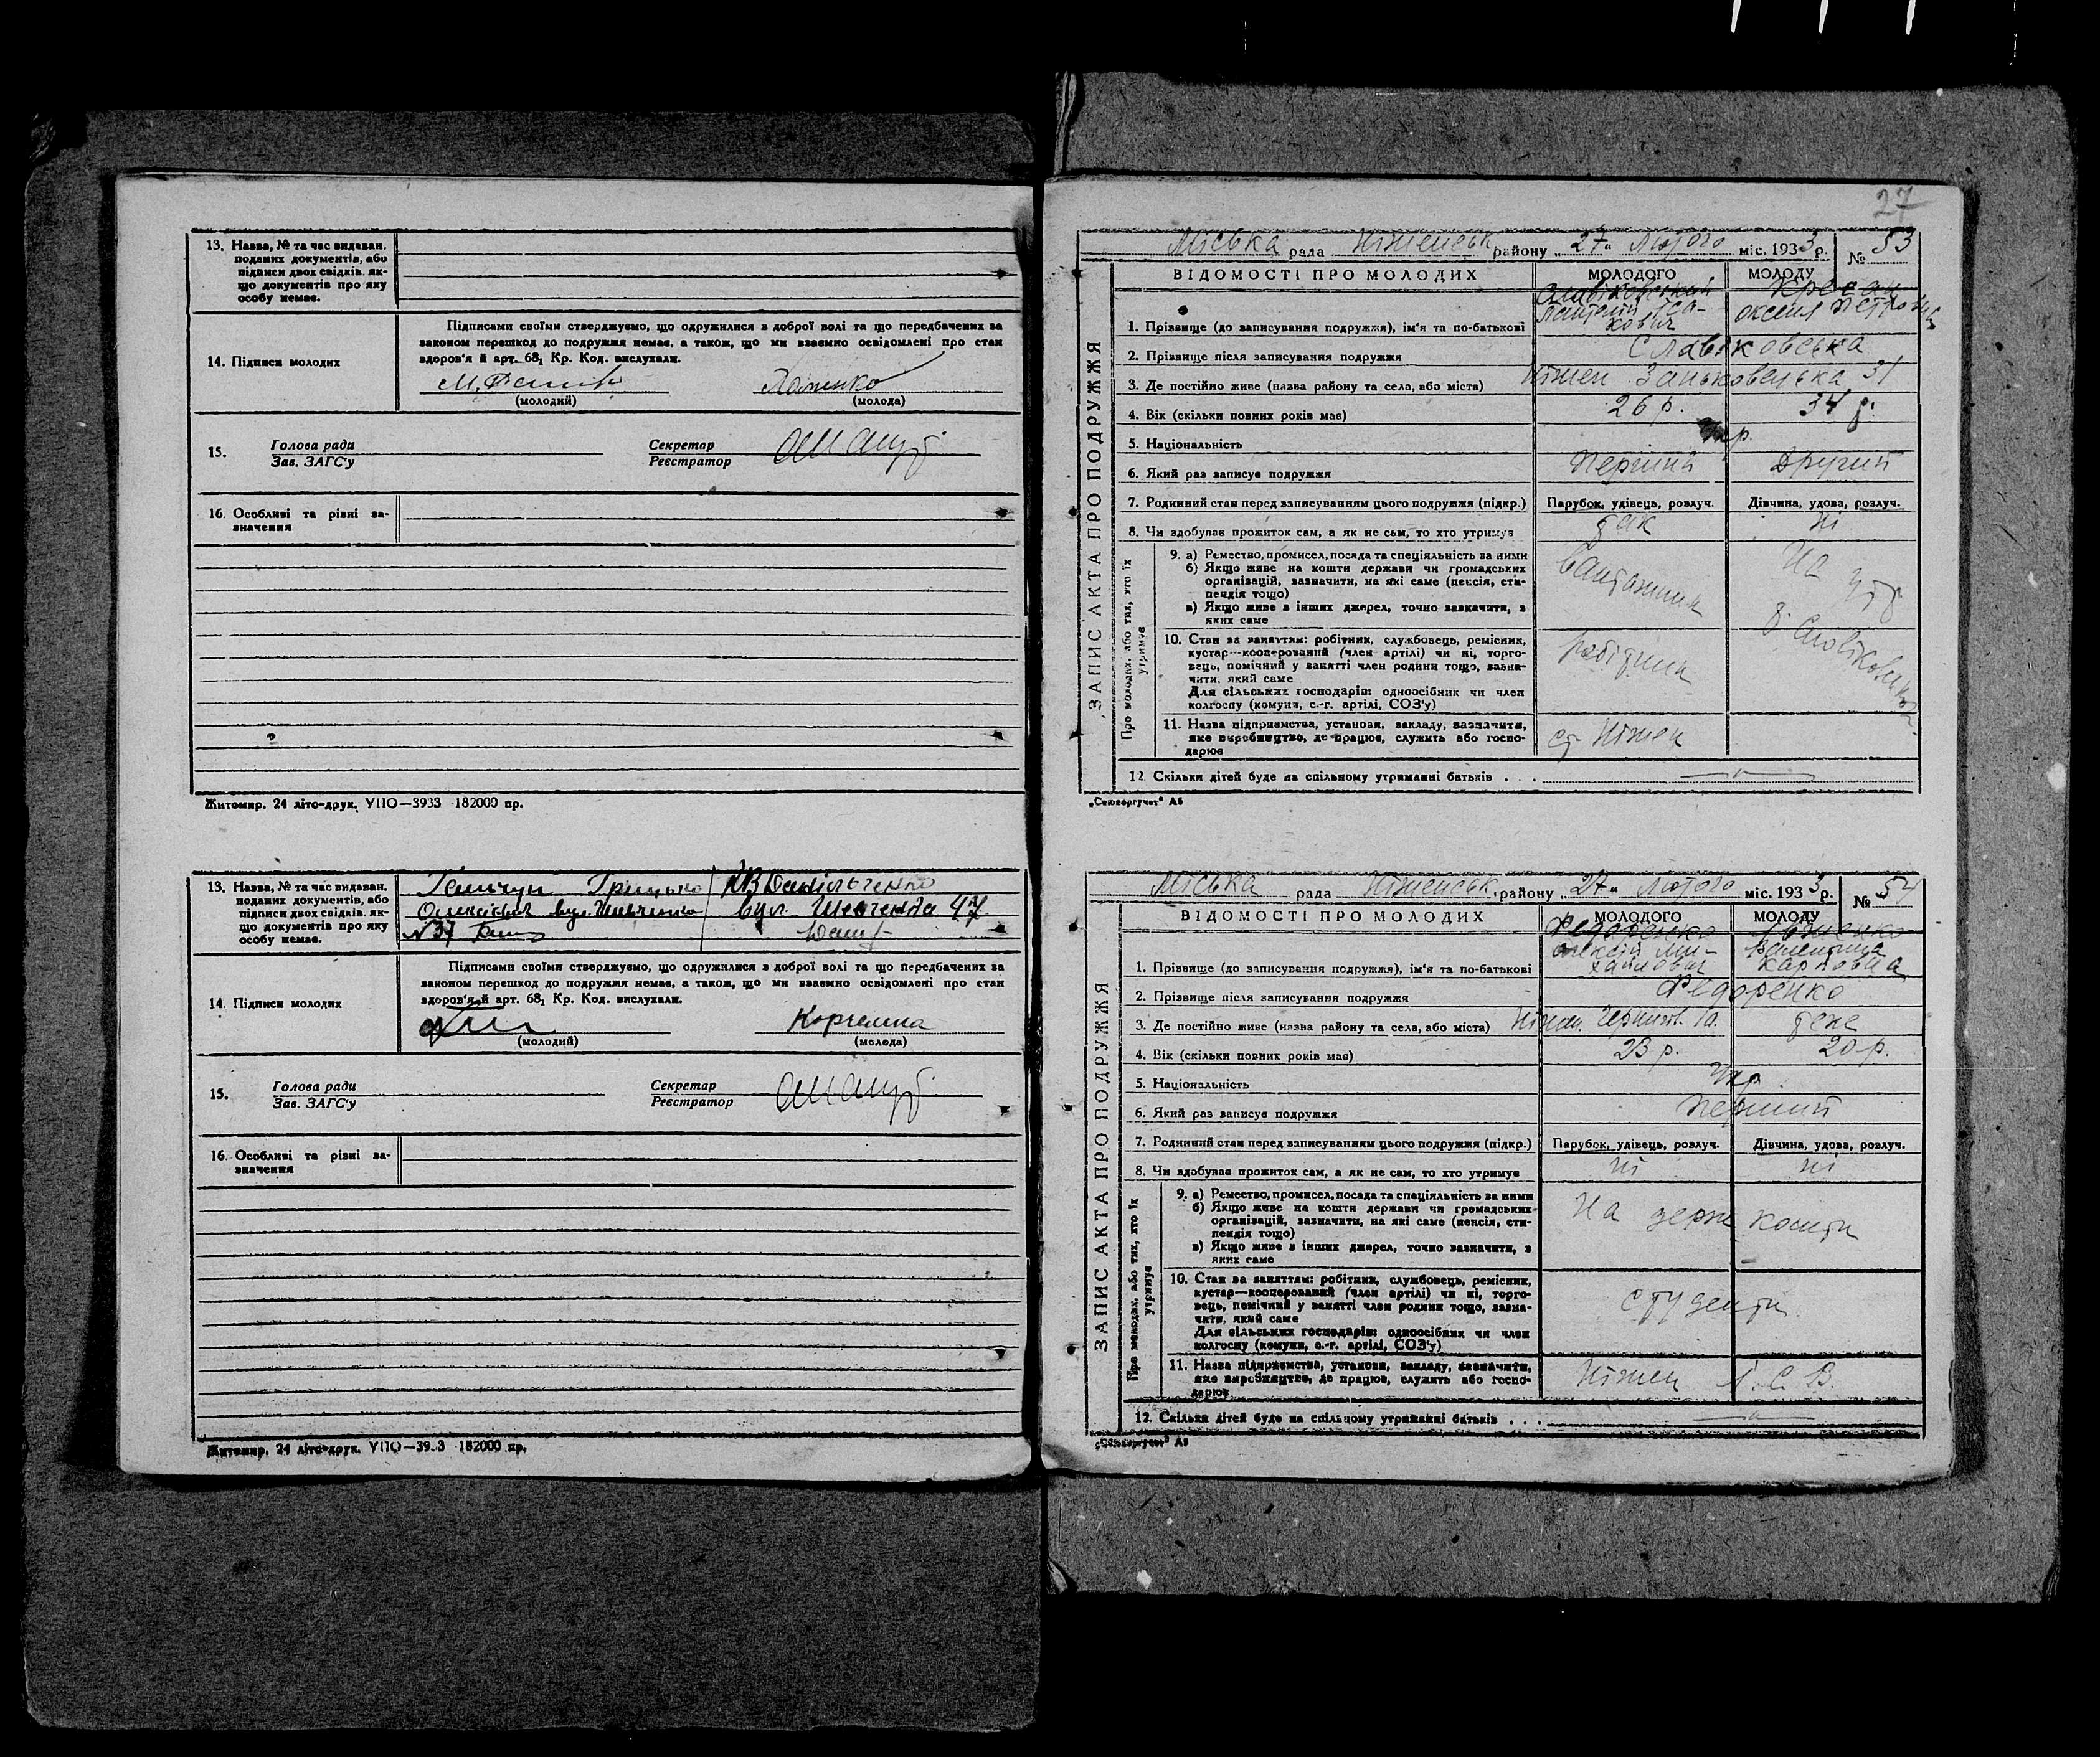 13. Назва, № та час видаван.
поданих документів, або
підписи двох свідків, як-
що документів про яку
особу немає.
Підписами своїми стверджуємо, що одружилися з доброї волі та що передбачених за
законом перешкод до подружжя немає, а також, що ми взаємно освідомлені про стан
здоров'я й арт. 68₁ Кр. Код. вислухали.
14. Підписи молодих
(молодий) (молода)
15. Голова ради Секретар
Зав. ЗАГС'у Реєстратор
16. Особливі та різні за-
значення
Житомир. 24 літо-друк. УПО—3933 182000 пр.
13. Назва, № та час видаван.
поданих документів, або
підписи двох свідків, як-
що документів про яку
особу немає.
вул. Шевченка 47
№ 37
Підписами своїми стверджуємо, що одружилися з доброї волі та що передбачених за
законом перешкод до подружжя немає, а також, що ми взаємно освідомлені про стан
здоров'я й арт. 68₁ Кр. Код. вислухали.
14. Підписи молодих
(молодий) (молода)
15. Голова ради Секретар
Зав. ЗАГС'у Реєстратор
16. Особливі та різні за-
значення
Житомир. 24 літо-друк. УПО—3933 182000 пр.
27
Міська рада Ніженськ району „27" Лютого міс. 1933 р. № 53
ЗАПИС АКТА ПРО ПОДРУЖЖЯ
ВІДОМОСТІ ПРО МОЛОДИХ МОЛОДОГО МОЛОДУ
1. Прізвище (до записування подружжя), ім'я та по-батькові Оксена Петровна
2. Прізвище після записування подружжя Славіковська
3. Де постійно живе (назва району та села, або міста) Ніжен Заньковецька 31
4. Вік (скільки повних років має) 26 р. 34 р.
5. Національність Укр.
6. Який раз записує подружжя Перший Другий
7. Родинний стан перед записуванням цього подружжя (підкр.) Парубок, удівець, розлуч. Дівчина, удова, розлуч.
8. Чи здобуває прожиток сам, а як не сам, то хто утримує так ні
Про молодих, або тих, хто їх
утримує
9. а) Ремество, промисел, посада та спеціяльність за ними
б) Якщо живе на кошти держави чи громадських
організацій, зазначити, на які саме (пенсія, сти-
пендія тощо)
в) Якщо живе з інших джерел, точно зазначити, з
яких саме
Вантажник
На утр
10. Стан за заняттям: робітник, службовець, ремісник,
кустар—кооперований (член артілі) чи ні, торго-
вець, помічний у занятті член родини тощо, зазна-
чити, який саме
Для сільських господарів: одноосібник чи член
колгоспу (комуни, с.-г. артілі, СОЗ'у)
робітник
11. Назва підприємства, установи, закладу, зазначити,
яке виробництво, де працює, служить або госпо-
дарює
ст Ніжен
12. Скільки дітей буде на спільному утриманні батьків . . .
„Союзоргучет" А5
Міська рада Ніженськ. району „27" Лютого міс. 1933 р. № 54
ЗАПИС АКТА ПРО ПОДРУЖЖЯ
ВІДОМОСТІ ПРО МОЛОДИХ МОЛОДОГО МОЛОДУ
Федоренко
1. Прізвище (до записування подружжя), ім'я та по-батькові Олексій Ми-
хайлович Валентина
Карповна
2. Прізвище після записування подружжя Федоренко
3. Де постійно живе (назва району та села, або міста)
4. Вік (скільки повних років має) 23 р. 20 р.
5. Національність Укр
6. Який раз записує подружжя Перший
7. Родинний стан перед записуванням цього подружжя (підкр.) Парубок, удівець, розлуч. Дівчина, удова, розлуч.
8. Чи здобуває прожиток сам, а як не сам, то хто утримує ні ні
Про молодих, або тих, хто їх
утримує
9. а) Ремество, промисел, посада та спеціяльність за ними
б) Якщо живе на кошти держави чи громадських
організацій, зазначити, на які саме (пенсія, сти-
пендія тощо)
в) Якщо живе з інших джерел, точно зазначити, з
яких саме
На держ кошти
10. Стан за заняттям: робітник, службовець, ремісник,
кустар—кооперований (член артілі) чи ні, торго-
вець, помічний у занятті член родини тощо, зазна-
чити, який саме
Для сільських господарів: одноосібник чи член
колгоспу (комуни, с.-г. артілі, СОЗ'у)
студенти
11. Назва підприємства, установи, закладу, зазначити,
яке виробництво, де працює, служить або госпо-
дарює
Ніжен І. С. В.
12. Скільки дітей буде на спільному утриманні батьків . . .
„Союзоргучет" А5